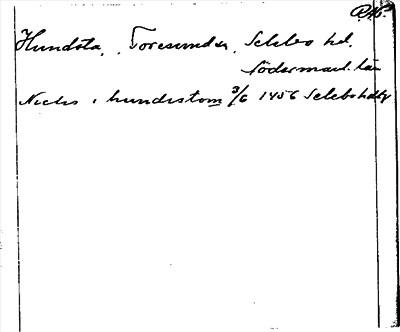 Hundsta, Toresunda, Selebo hd.
Södermanl. län
Niclis i hundistom 3/6 1456 Selebo hdbr